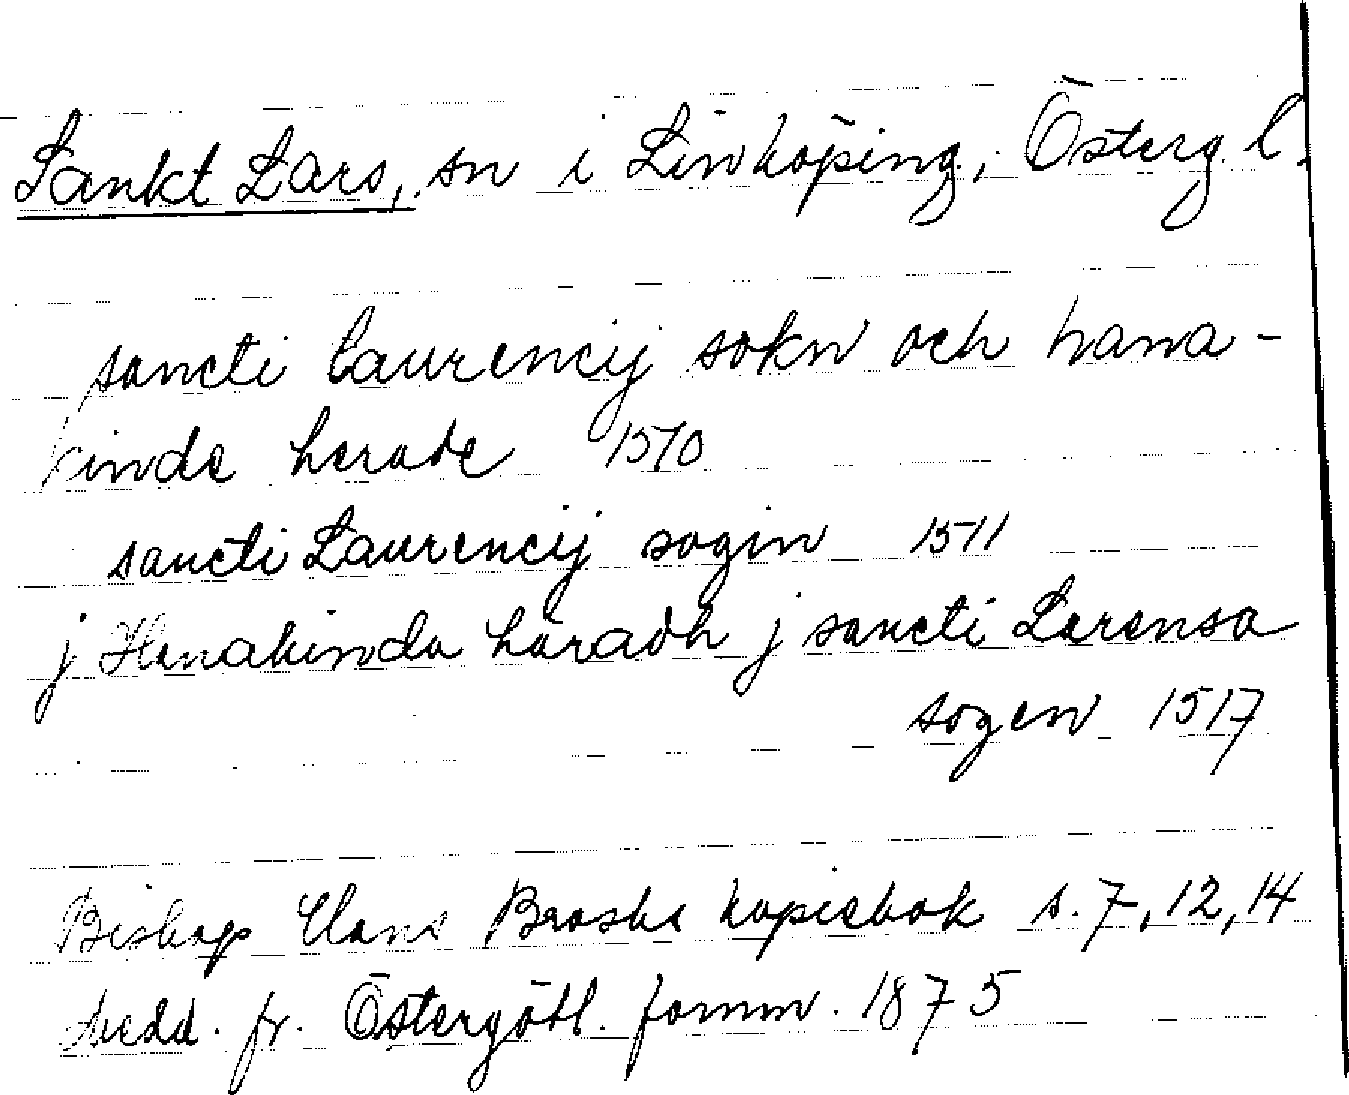 Sankt Lars, sn i Linköping, Österg. l.
sancti laurencij sokn och hana-
kinde herade 1510
sancti Laurencij sogin 1511
j Hanakinda häradh j sancti Larensa
sogen 1517
Biskop Hans Brasks kopiebok s. 7, 12, 14
Medd. fr. Östergötl. fornm. 1875